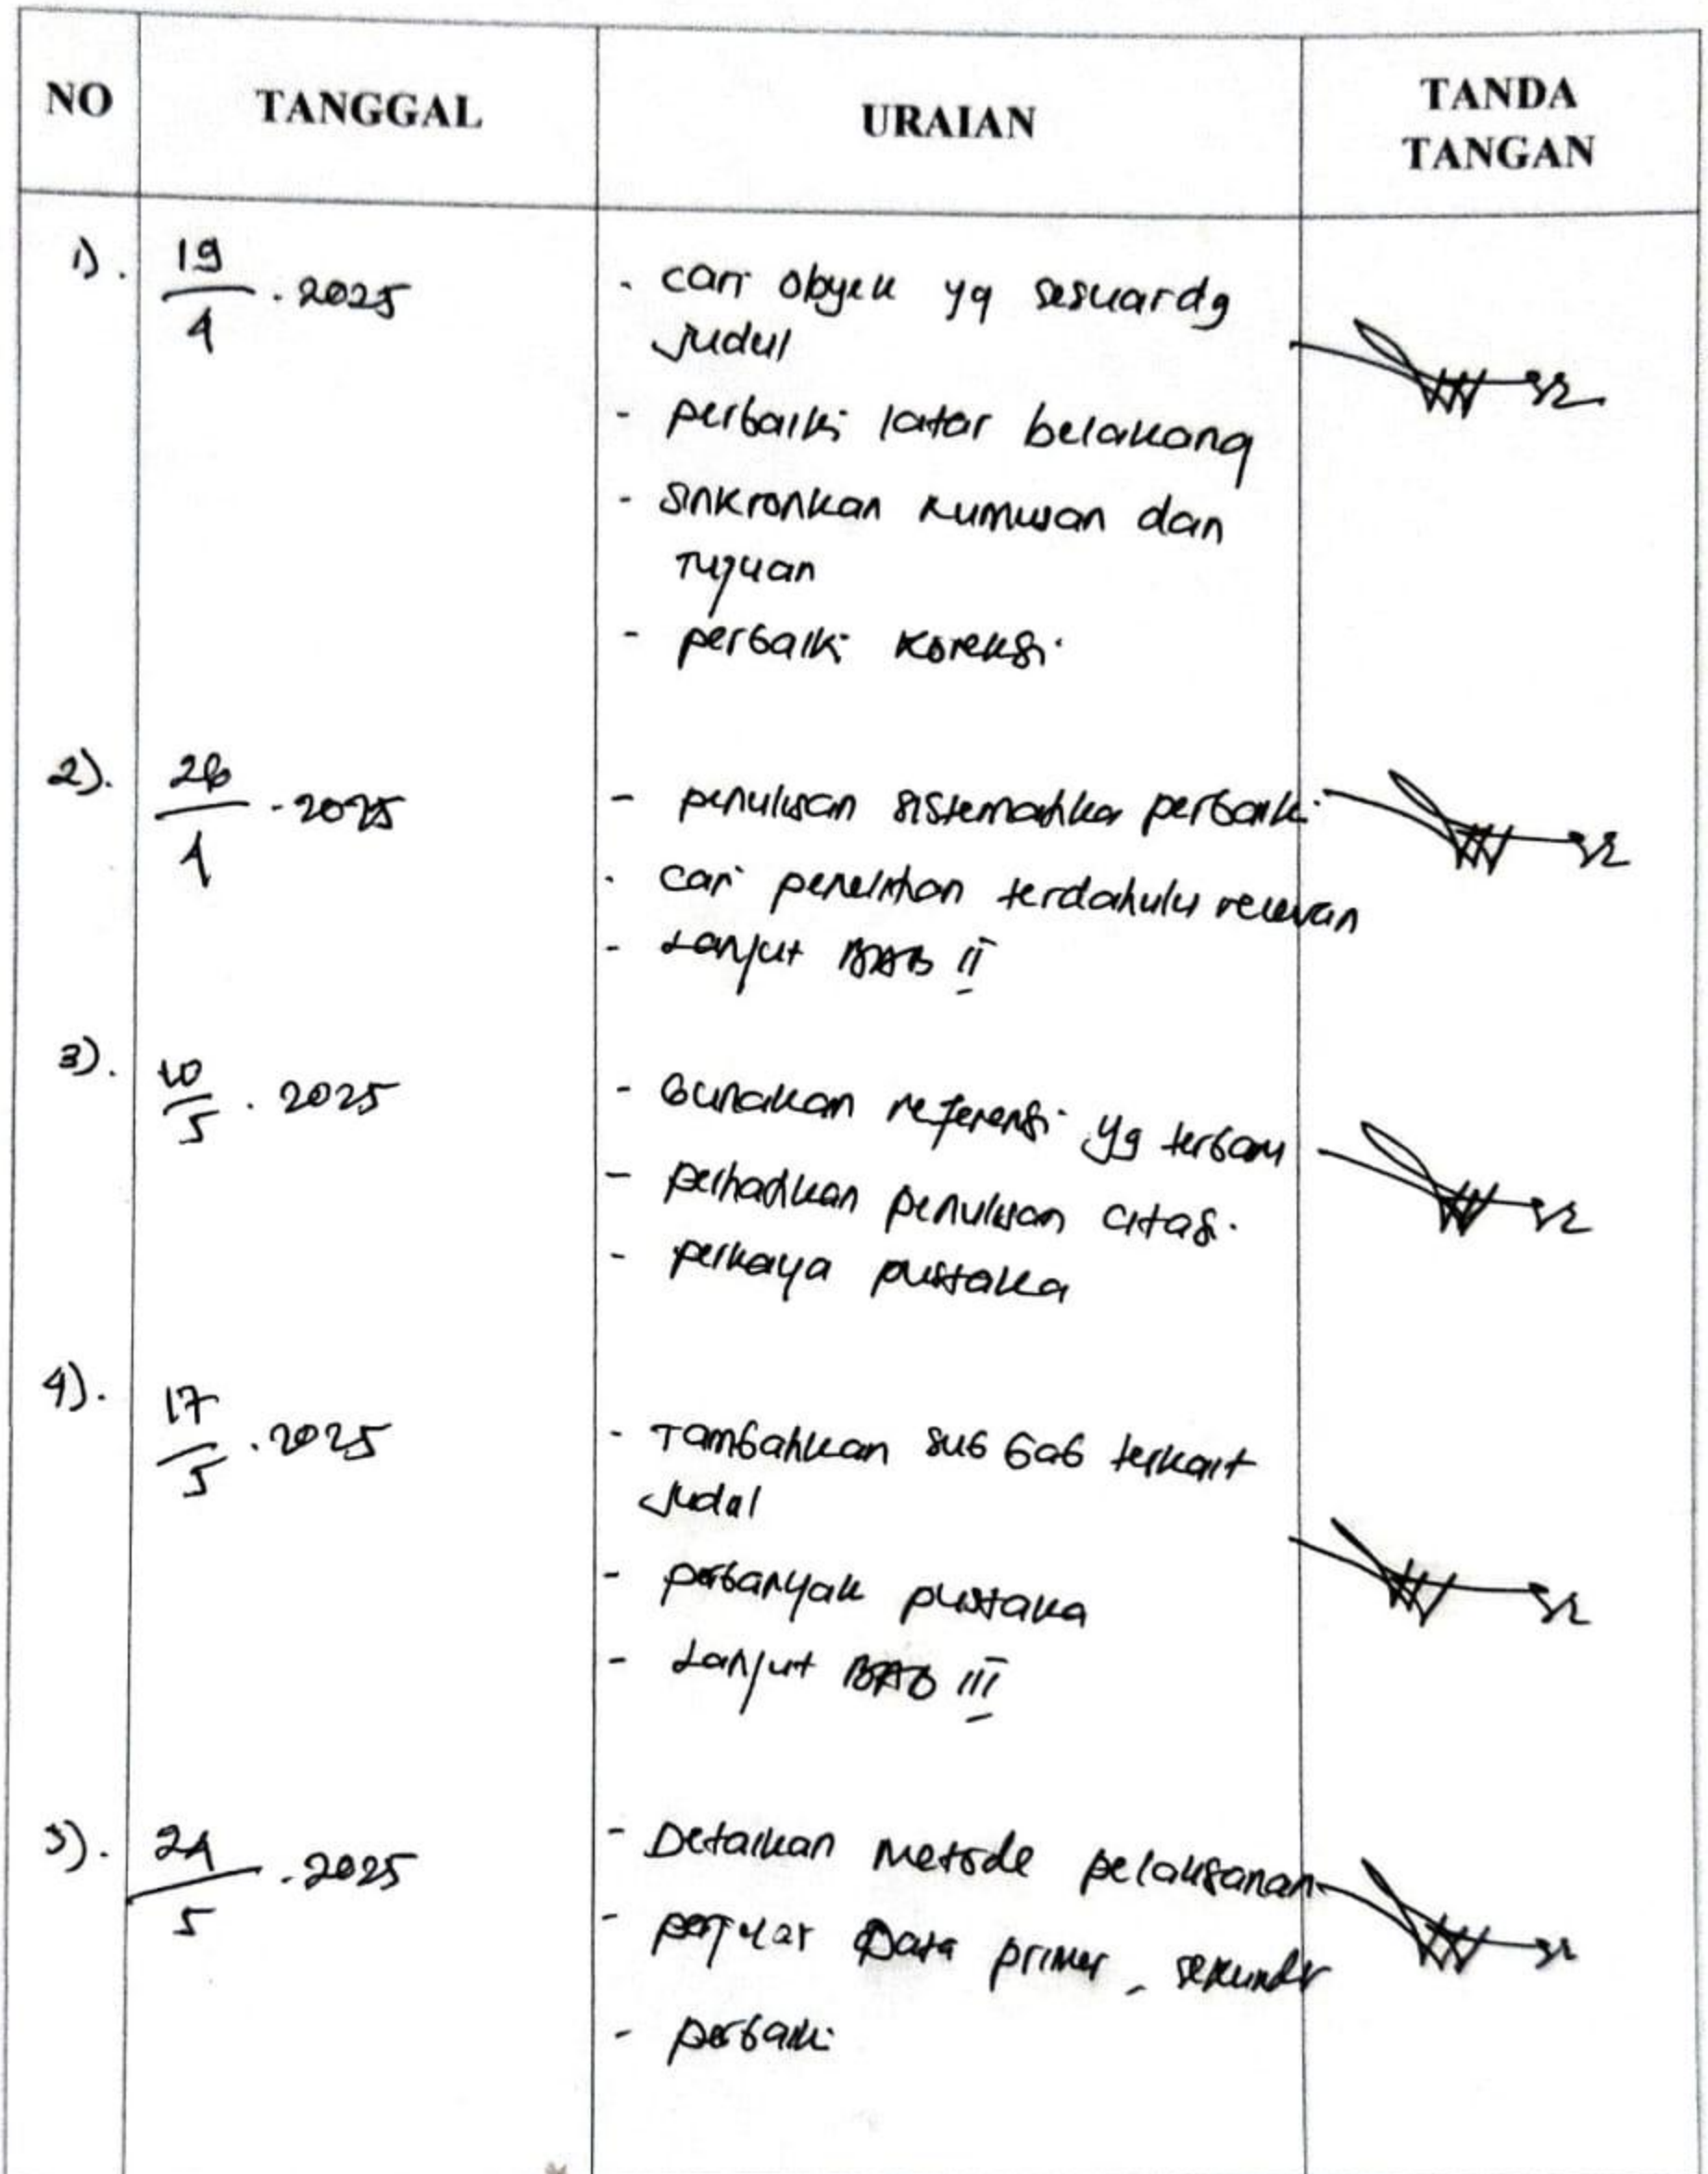 NO TANGGAL URAIAN TANDA TANGAN
1). 19/4 . 2025
- cari obyek yg sesuai dg
judul
- perbaiki latar belakang
- sinkronkan Rumusan dan
Tujuan
- perbaiki koreksi.
2). 26/4 - 2025
- penulisan sistematika perbaiki
- cari penelitian terdahulu relevan
- Lanjut BAB II
3). 10/5 . 2025
- Gunakan referensi yg terbaru
- perhatikan penulisan citasi.
- perkaya pustaka
4). 17/5 . 2025
- Tambahkan sub bab terkait
judul
- perbanyak pustaka
- Lanjut BAB III
5). 24/5 . 2025
- Detailkan Metode pelaksanan
- Data primer, sekunder
- perbaiki